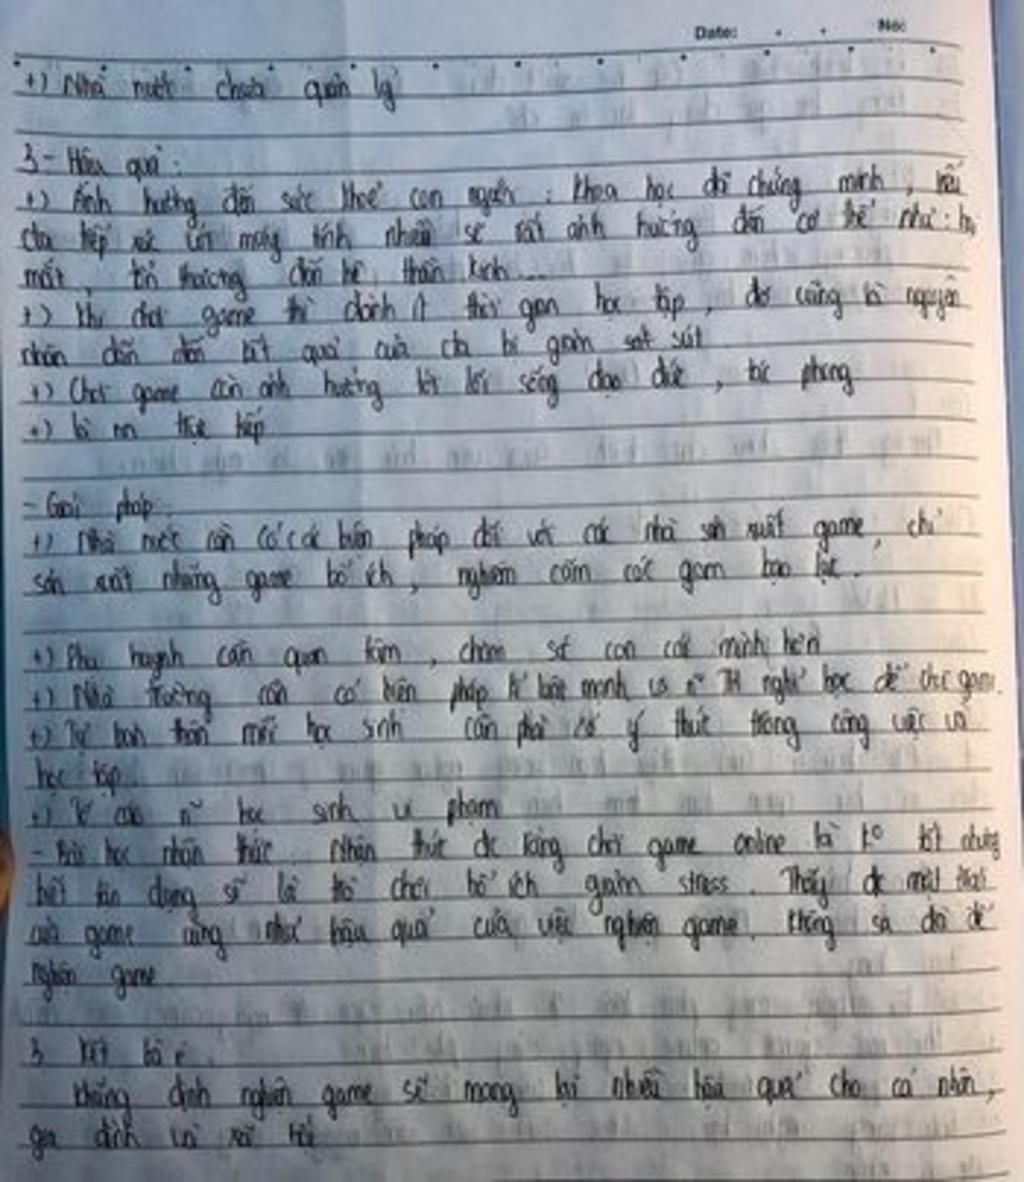 Date: No:
+) Nhà nước chưa quản lý
3 - Hậu quả:
+) Ảnh hưởng đến sức khoẻ con người: khoa học đã chứng minh, nếu
ta tiếp xúc với máy tính nhiều sẽ rất ảnh hưởng đến cơ thể như:
mắt, tổn thương đến hệ thần kinh...
+) Khi chơi game thì dành ít thời gian học tập, đó cũng là nguyên
nhân dẫn đến kết quả của ta bị giảm sát sút
+) Chơi game còn ảnh hưởng tới lối sống đạo đức, tác phong
+) trực tiếp
- Giải pháp:
+) Nhà nước cần có các biện pháp đối với các nhà sản xuất game, chỉ
sản xuất những game bổ ích, nghiêm cấm các gam bạo lực.
+) Phụ huynh cần quan tâm, chăm sóc con cái mình hơn
+) Nhà trường cần có biện pháp kỉ luật mạnh vs n~ TH nghỉ học để chơi game.
+) Tự bản thân mỗi học sinh cần phải có ý thức trong công việc và
học tập.
+) n~ học sinh vi phạm
- Bài học nhận thức: Nhận thức đc rằng chơi game online là ko tốt nhưng
biết tận dụng sẽ là trò chơi bổ ích giảm stress. Thấy đc mặt trái
của game cũng như hậu quả của việc nghiện game. Không sa đà để
nghiện game
3 Kết bài:
Khẳng định nghiện game sẽ mang lại nhiều hậu quả cho cá nhân,
gia đình và xã hội